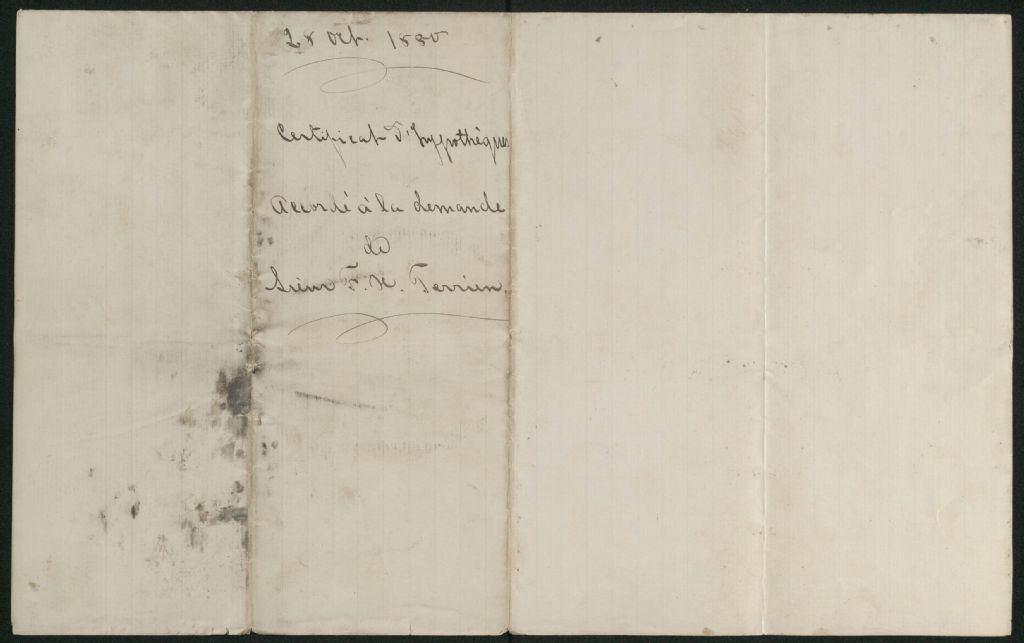 28 Oct. 1880
Certificat d'hypothèques
Accordé à la demande
de
Sieur F. N. Terrien.